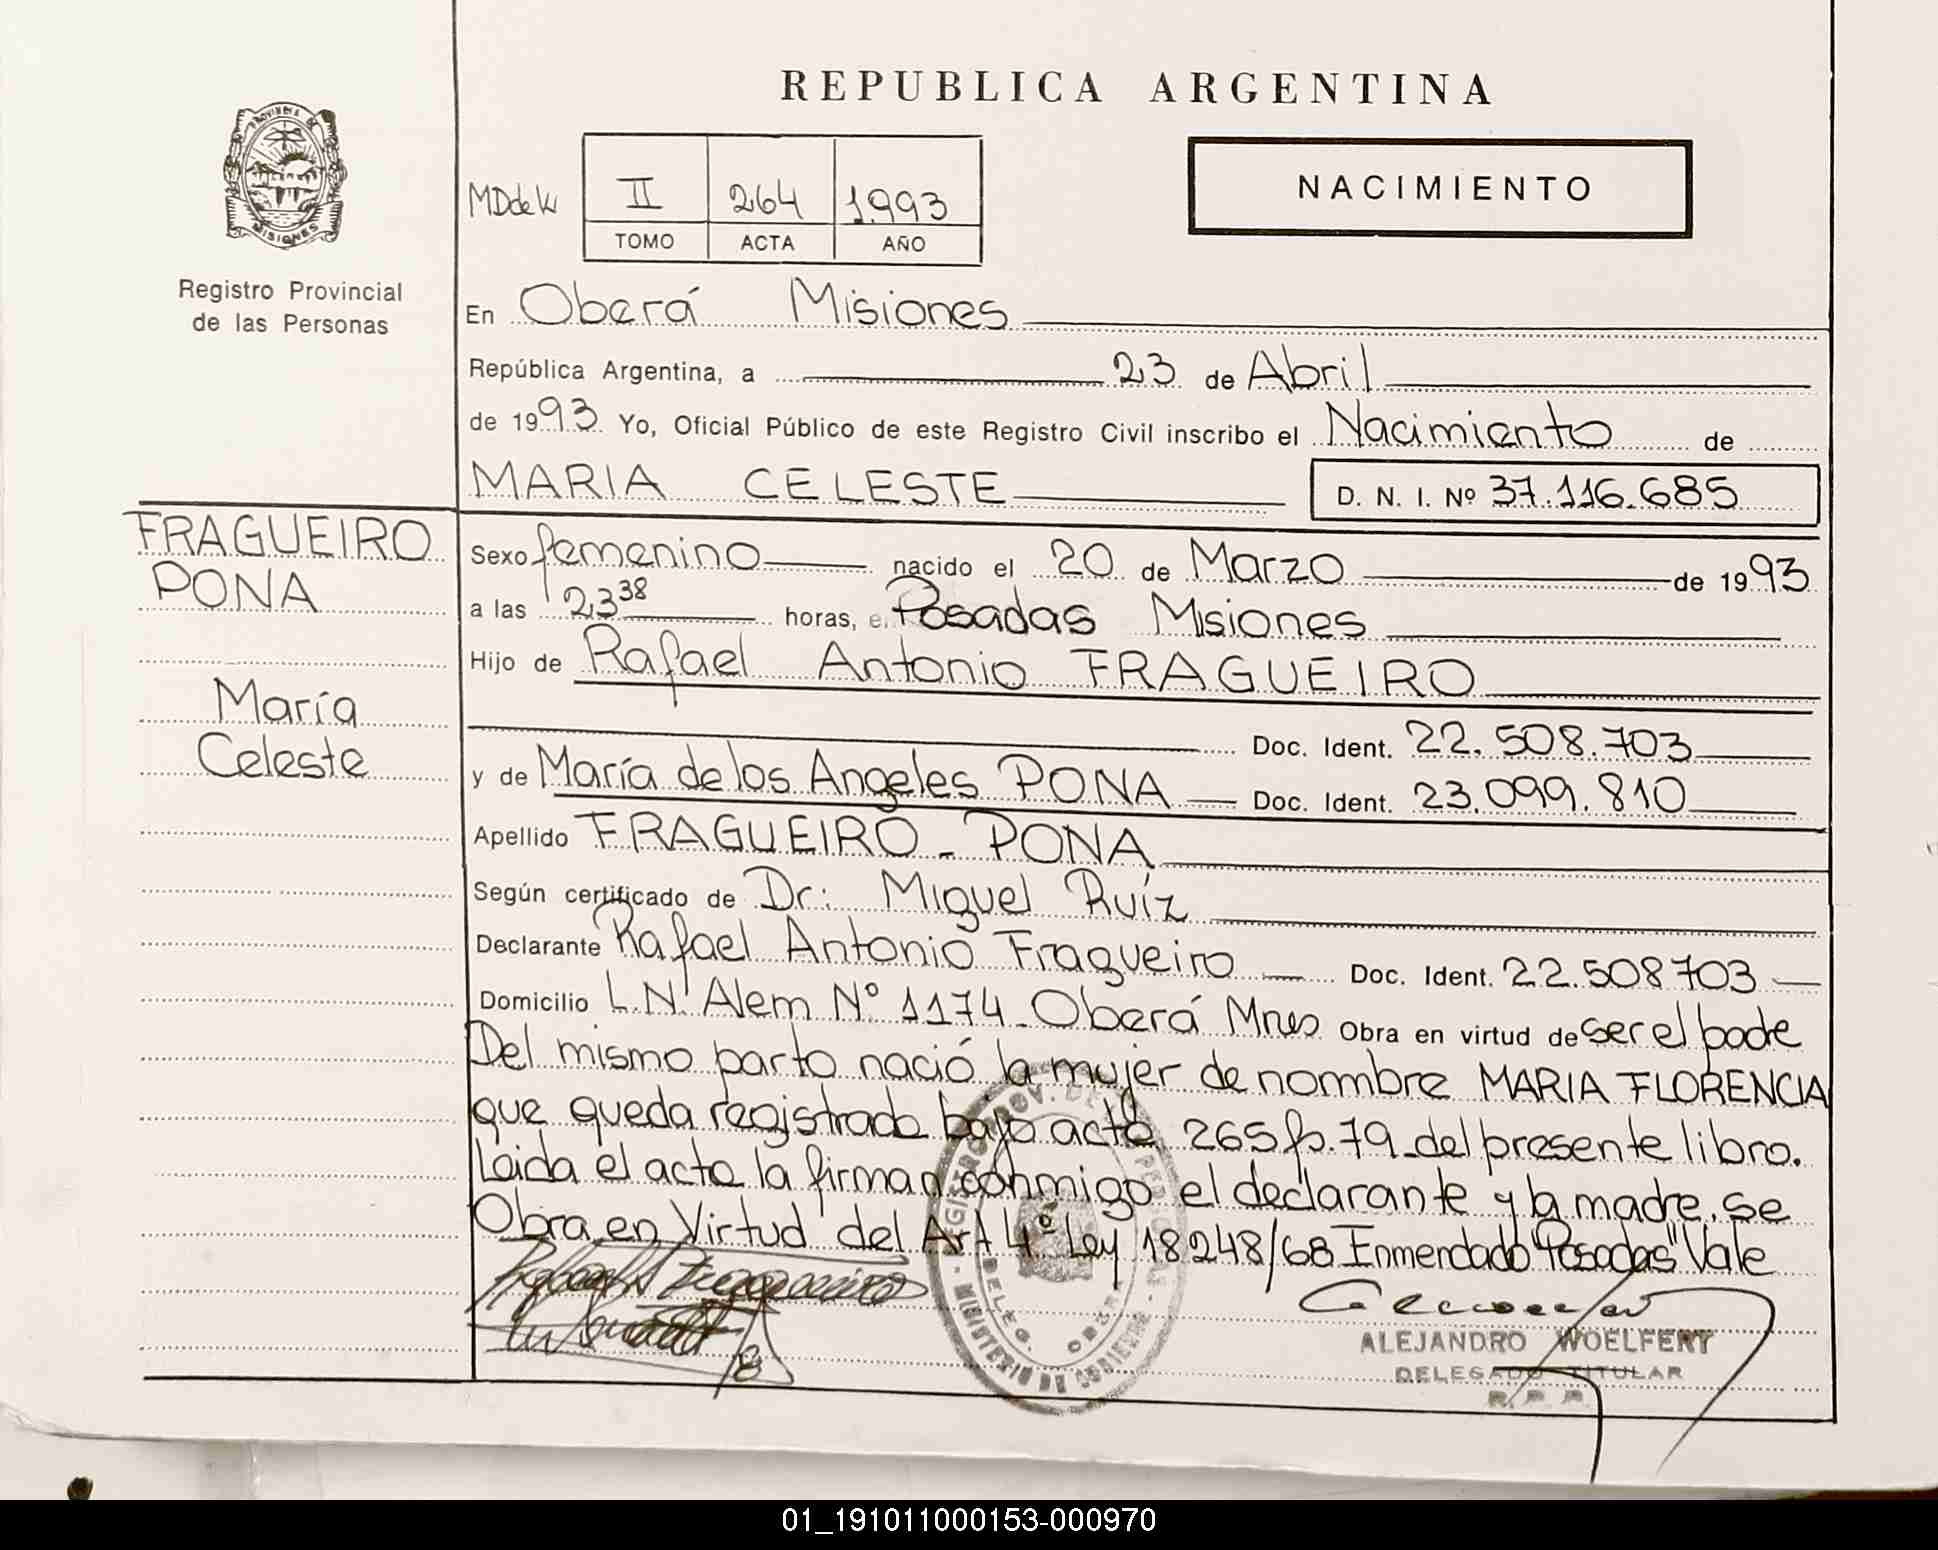 REPUBLICA ARGENTINA
PROVINCIA DE
MISIONES
Registro Provincial
de las Personas
NACIMIENTO
II 264 1.993
TOMO ACTA AÑO
En Oberá Misiones
República Argentina, a 23 de Abril
de 1993 Yo, Oficial Público de este Registro Civil inscribo el Nacimiento de
MARIA CELESTE D. N. I. Nº 37.116.685
FRAGUEIRO
PONA
María
Celeste
Sexo femenino nacido el 20 de Marzo de 1993
a las 23 38 horas, e. Posadas Misiones
Hijo de Rafael Antonio FRAGUEIRO
Doc. Ident. 22.508.703
y de María de los Angeles PONA Doc. Ident. 23.099.810
Apellido FRAGUEIRO - PONA
Según certificado de Dr: Miguel Ruíz
Declarante Rafael Antonio Fragueiro Doc. Ident. 22.508703
Domicilio L.N. Alem Nº 1174 - Oberá Mnes Obra en virtud de ser el padre
Del mismo parto nació la mujer de nommbre MARIA FLORENCIA
que queda registrada bajo acta 265 fo. 79 - del presente libro.
Leida el acta la firman conmigo el declarante y la madre. se
Obra en Virtud del Art 4º Ley 18248/68 Enmendado "Posadas" Vale
MINISTERIO DE GOBIERNO
DELEG. OBERA
ALEJANDRO WOELFERT
DELEGADO TITULAR
R. P. P.
01_191011000153-000970